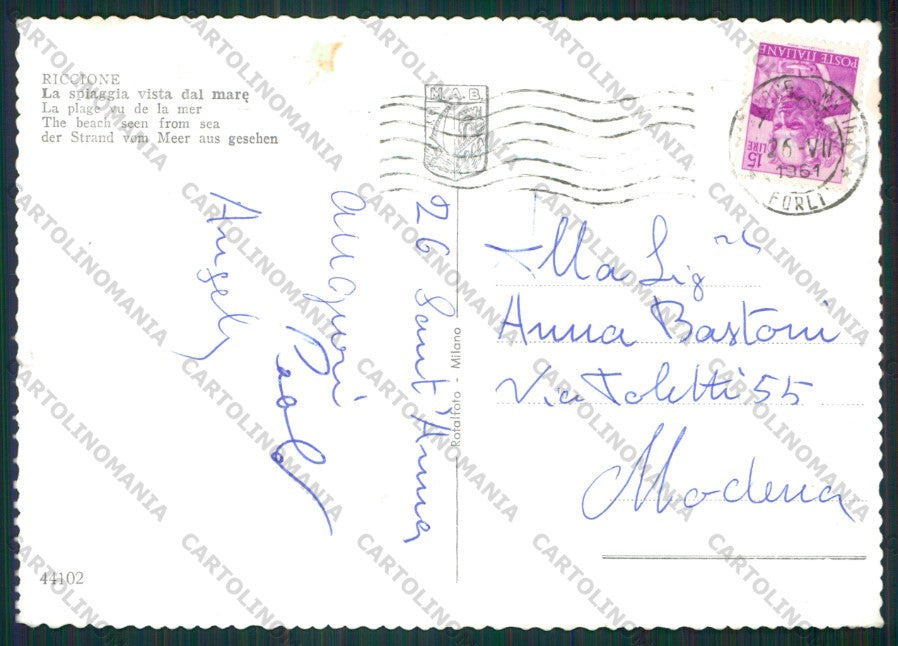 RICCIONE
La spiaggia vista dal mare
La plage vu de la mer
The beach seen from sea
der Strand vom Meer aus gesehen
M.A.B.
POSTE ITALIANE
15 LIRE
26-VII
1961
FORLI
26 Sant'Anna
auguri
Paolo
Angela
Rotalfoto - Milano
Alla Sig.na
Anna Bastoni
Via Toletti 55
Modena
44102
CARTOLINOMANIA